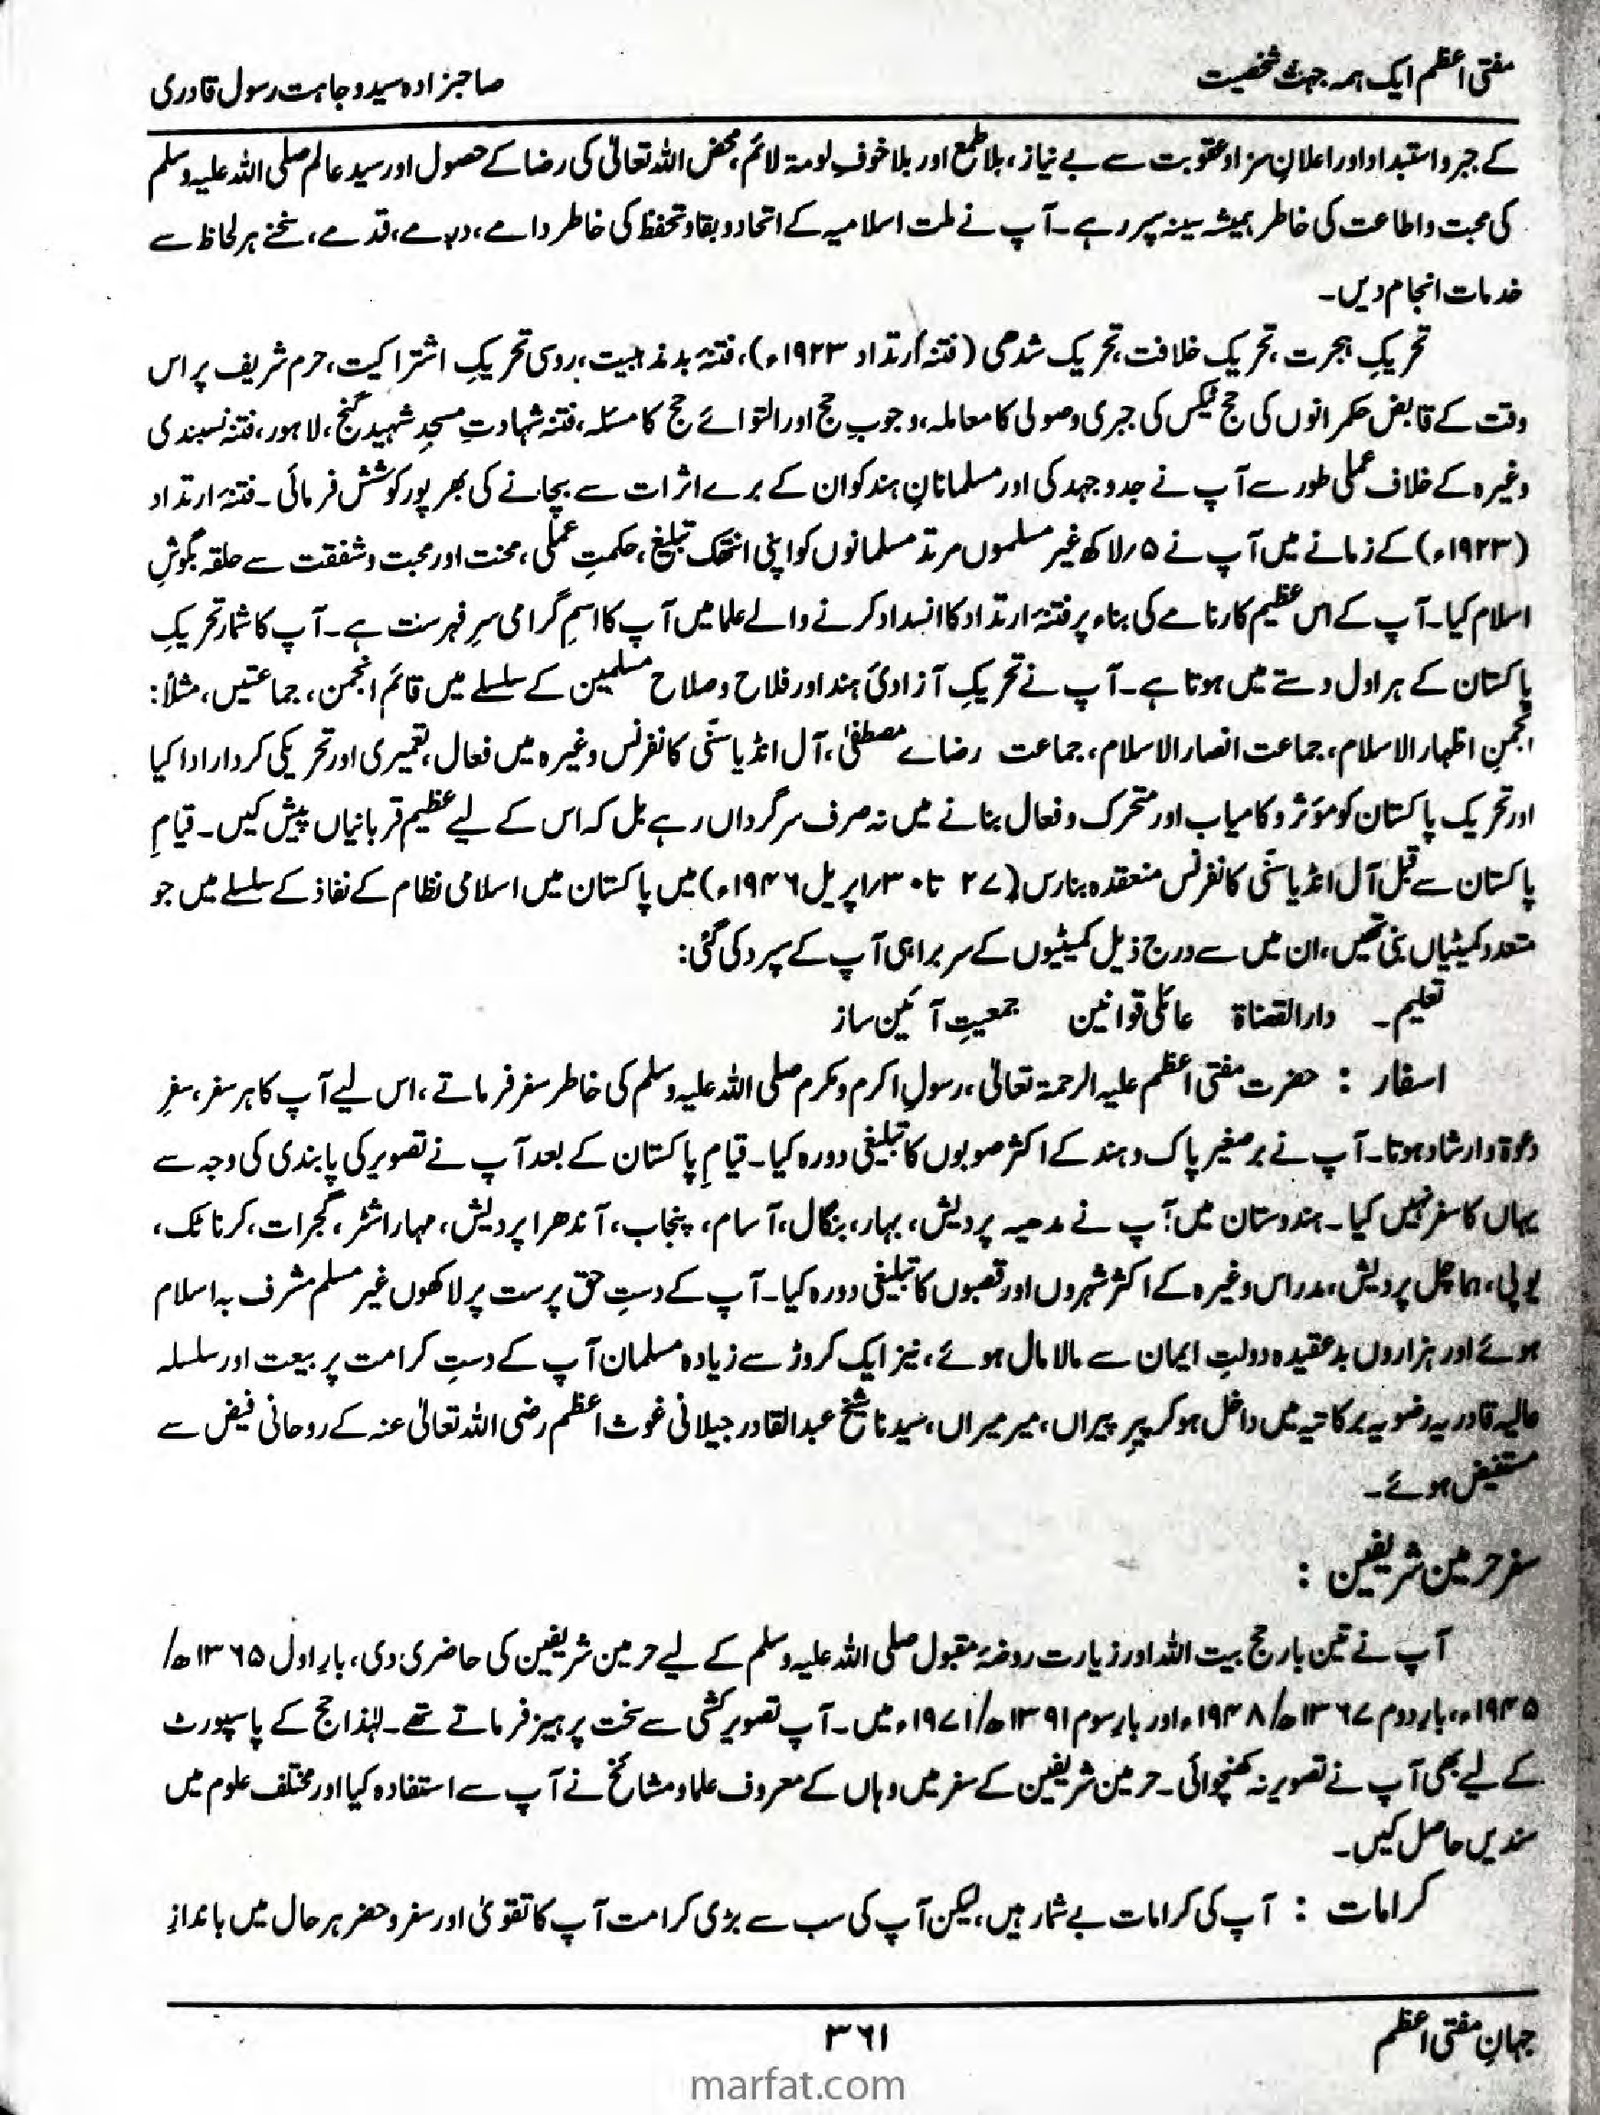 مفتی اعظم ایک ہمہ جہت شخصیت
صاحبزادہ سید وجاہت رسول قادری
کے جبر و استبداد اور اعلانِ سزا و عقوبت سے بے نیاز، بلا طمع اور بلا خوفِ لومۃ لائم، محض اللہ تعالیٰ کی رضا کے حصول اور سید عالم صلی اللہ علیہ وسلم
کی محبت و اطاعت کی خاطر ہمیشہ سینہ سپر رہے۔ آپ نے ملت اسلامیہ کے اتحاد و بقا و تحفظ کی خاطر دامے، درہمے، قدمے، سخنے ہر لحاظ سے
خدمات انجام دیں۔
تحریکِ ہجرت، تحریکِ خلافت، تحریک شدھی (فتنۂ ارتداد ۱۹۲۳ء)، فتنۂ بد مذہبیت، روسی تحریکِ اشتراکیت، حرم شریف پر اس
وقت کے قابض حکمرانوں کی حج ٹیکس کی جبری وصولی کا معاملہ، وجوبِ حج اور التوائے حج کا مسئلہ، فتنہ شہادتِ مسجدِ شہید گنج، لاہور، فتنہ نسبندی
وغیرہ کے خلاف عملی طور سے آپ نے جدوجہد کی اور مسلمانانِ ہند کو ان کے برے اثرات سے بچانے کی بھرپور کوشش فرمائی۔ فتنۂ ارتداد
(۱۹۲۳ء) کے زمانے میں آپ نے ۵؍لاکھ غیر مسلموں مرتد مسلمانوں کو اپنی انتھک تبلیغ، حکمتِ عملی، محنت اور محبت و شفقت سے حلقہ بگوشِ
اسلام کیا۔ آپ کے اس عظیم کارنامے کی بناء پر فتنۂ ارتداد کا انسداد کرنے والے علما میں آپ کا اسمِ گرامی سرِ فہرست ہے۔ آپ کا شمار تحریکِ
پاکستان کے ہر اول دستے میں ہوتا ہے۔ آپ نے تحریکِ آزادیٔ ہند اور فلاح و صلاح مسلمین کے سلسلے میں قائم انجمن، جماعتیں، مثلاً:
انجمن اظہار الاسلام، جماعت انصار الاسلام، جماعت رضائے مصطفیٰ، آل انڈیا سنّی کانفرنس وغیرہ میں فعال، تعمیری اور تحریکی کردار ادا کیا
اور تحریک پاکستان کو مؤثر و کامیاب اور متحرک و فعال بنانے میں نہ صرف سرگرداں رہے بل کہ اس کے لیے عظیم قربانیاں پیش کیں۔ قیامِ
پاکستان سے قبل آل انڈیا سنّی کانفرنس منعقدہ بنارس (۲۷ تا ۳۰؍اپریل ۱۹۴۶ء) میں پاکستان میں اسلامی نظام کے نفاذ کے سلسلے میں جو
متعدد کمیٹیاں بنی تھیں، ان میں سے درج ذیل کمیٹیوں کے سربراہی آپ کے سپرد کی گئی:
تعلیم۔ دارالقضاۃ عائلی قوانین جمعیتِ آئین ساز
اسفار : حضرت مفتی اعظم علیہ الرحمۃ تعالیٰ، رسولِ اکرم و مکرم صلی اللہ علیہ وسلم کی خاطر سفر فرماتے، اس لیے آپ کا ہر سفر، سفرِ
دعوۃ و ارشاد ہوتا۔ آپ نے برصغیر پاک و ہند کے اکثر صوبوں کا تبلیغی دورہ کیا۔ قیامِ پاکستان کے بعد آپ نے تصویر کی پابندی کی وجہ سے
یہاں کا سفر نہیں کیا۔ ہندوستان میں آپ نے مدھیہ پردیش، بہار، بنگال، آسام، پنجاب، آندھرا پردیش، مہاراشٹر، گجرات، کرناٹک،
یوپی، ہماچل پردیش، مدراس وغیرہ کے اکثر شہروں اور قصبوں کا تبلیغی دورہ کیا۔ آپ کے دستِ حق پرست پر لاکھوں غیر مسلم مشرف بہ اسلام
ہوئے اور ہزاروں بد عقیدہ دولتِ ایمان سے مالا مال ہوئے، نیز ایک کروڑ سے زیادہ مسلمان آپ کے دستِ کرامت پر بیعت اور سلسلہ
عالیہ قادریہ رضویہ برکاتیہ میں داخل ہو کر پیرِ پیراں، میر میراں، سیدنا شیخ عبدالقادر جیلانی غوث اعظم رضی اللہ تعالیٰ عنہ کے روحانی فیض سے
مستفیض ہوئے۔
سفر حرمین شریفین :
آپ نے تین بار حج بیت اللہ اور زیارت روضۂ مقبول صلی اللہ علیہ وسلم کے لیے حرمین شریفین کی حاضری دی، بارِ اول ۱۳۶۵ھ/
۱۹۴۵ء، بارِ دوم ۱۳۶۷ھ/۱۹۴۸ء اور بارِ سوم ۱۳۹۱ھ/۱۹۷۱ء میں۔ آپ تصویر کشی سے سخت پرہیز فرماتے تھے۔ لہٰذا حج کے پاسپورٹ
کے لیے بھی آپ نے تصویر نہ کھنچوائی۔ حرمین شریفین کے سفر میں وہاں کے معروف علما و مشائخ نے آپ سے استفادہ کیا اور مختلف علوم میں
سندیں حاصل کیں۔
کرامات : آپ کی کرامات بے شمار ہیں، لیکن آپ کی سب سے بڑی کرامت آپ کا تقویٰ اور سفر و حضر ہر حال میں باندازِ
جہانِ مفتی اعظم
۳۶۱
marfat.com